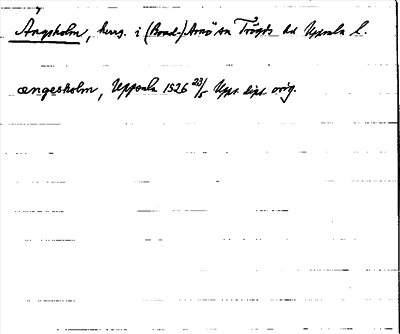 Ängsholm, herrg. i (Bond-)Arnö sn Trögds hd Uppsala l.
ængesholm, Uppsala 1526 23/5 Upps. dipl. orig.